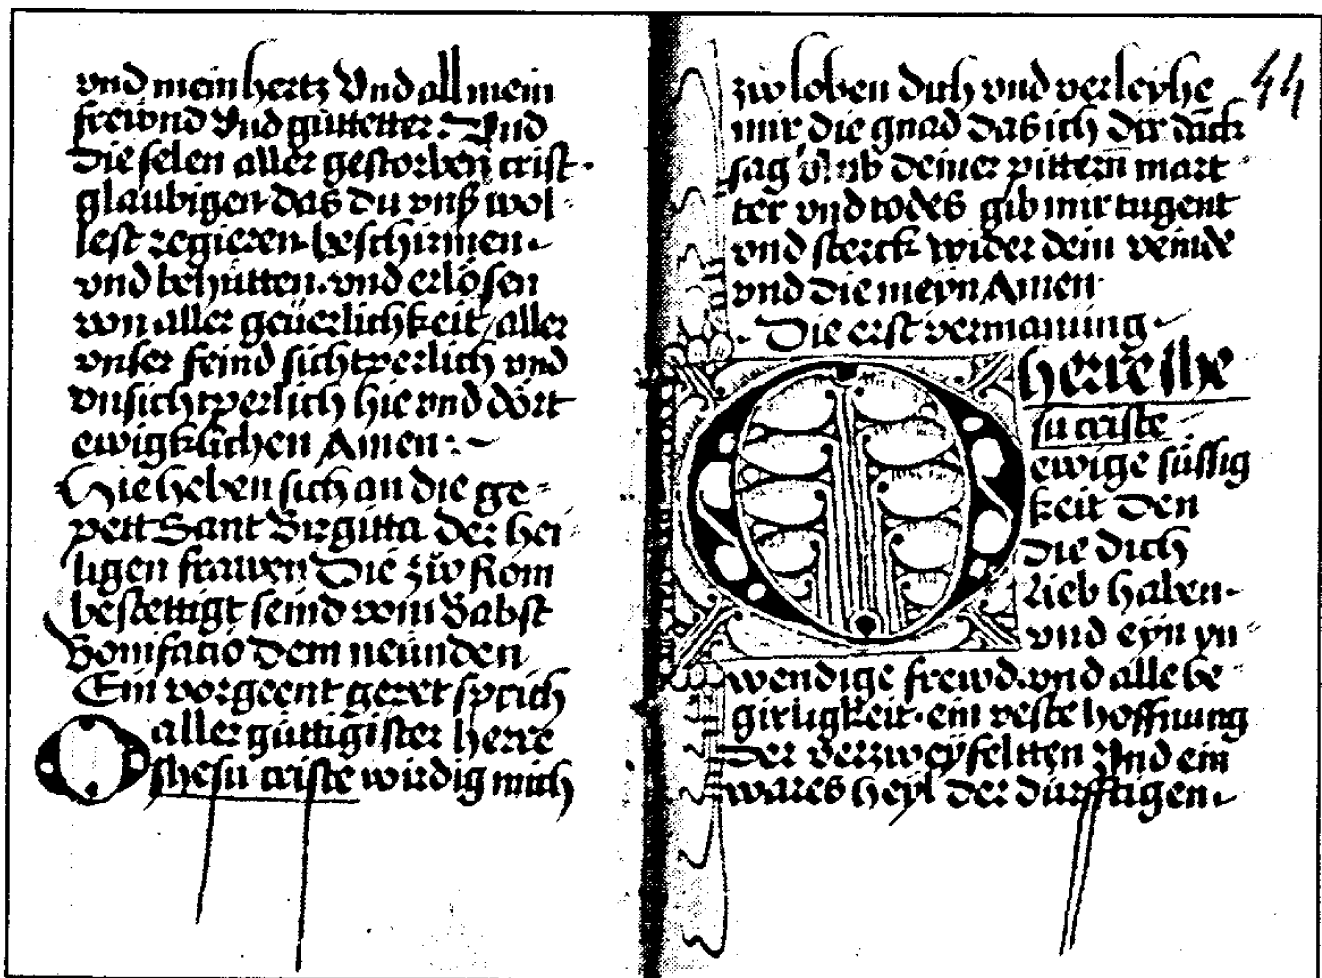 vnd mein hertz Vnd all mein
frewnd Vnd guttetter. Vnd
Die selen aller gestorben crist-
glaubigen das du vnß wol-
lest regieren. beschirmen.
vnd behůtten. vnd erlösen
von aller geuerlichkeit aller
vnser feind sichtperlich vnd
vnsichtperlich hie vnd dort
ewigklichen Amen:~
Hie heben sich an die ge-
pett Sant Birgitta der hei
ligen frawen Die zw Rom
bestettigt seind vom Babst
Bonifacio Dem neünden
Ein vorgeent gepet sprich
O aller güttigister herre
Jhesu criste wirdig mich
44
zw loben dich vnd verleyhe
mir die gnad das ich dir dāck
sag vmb deiner pittern mart
ter vnd todes gib mir tugent
vnd sterck wider dein veinde
vnd die meyn Amen
Die erst vermanung
O herre Jhe
su criste
ewige süssig
keit Den
Die dich
lieb haben.
vnd eyn yn
wendige frewd. vnd alle be
girligkeit. ein veste hoffnung
Der verzweyfeltten Vnd ein
wares heyl Der dürfftigen.